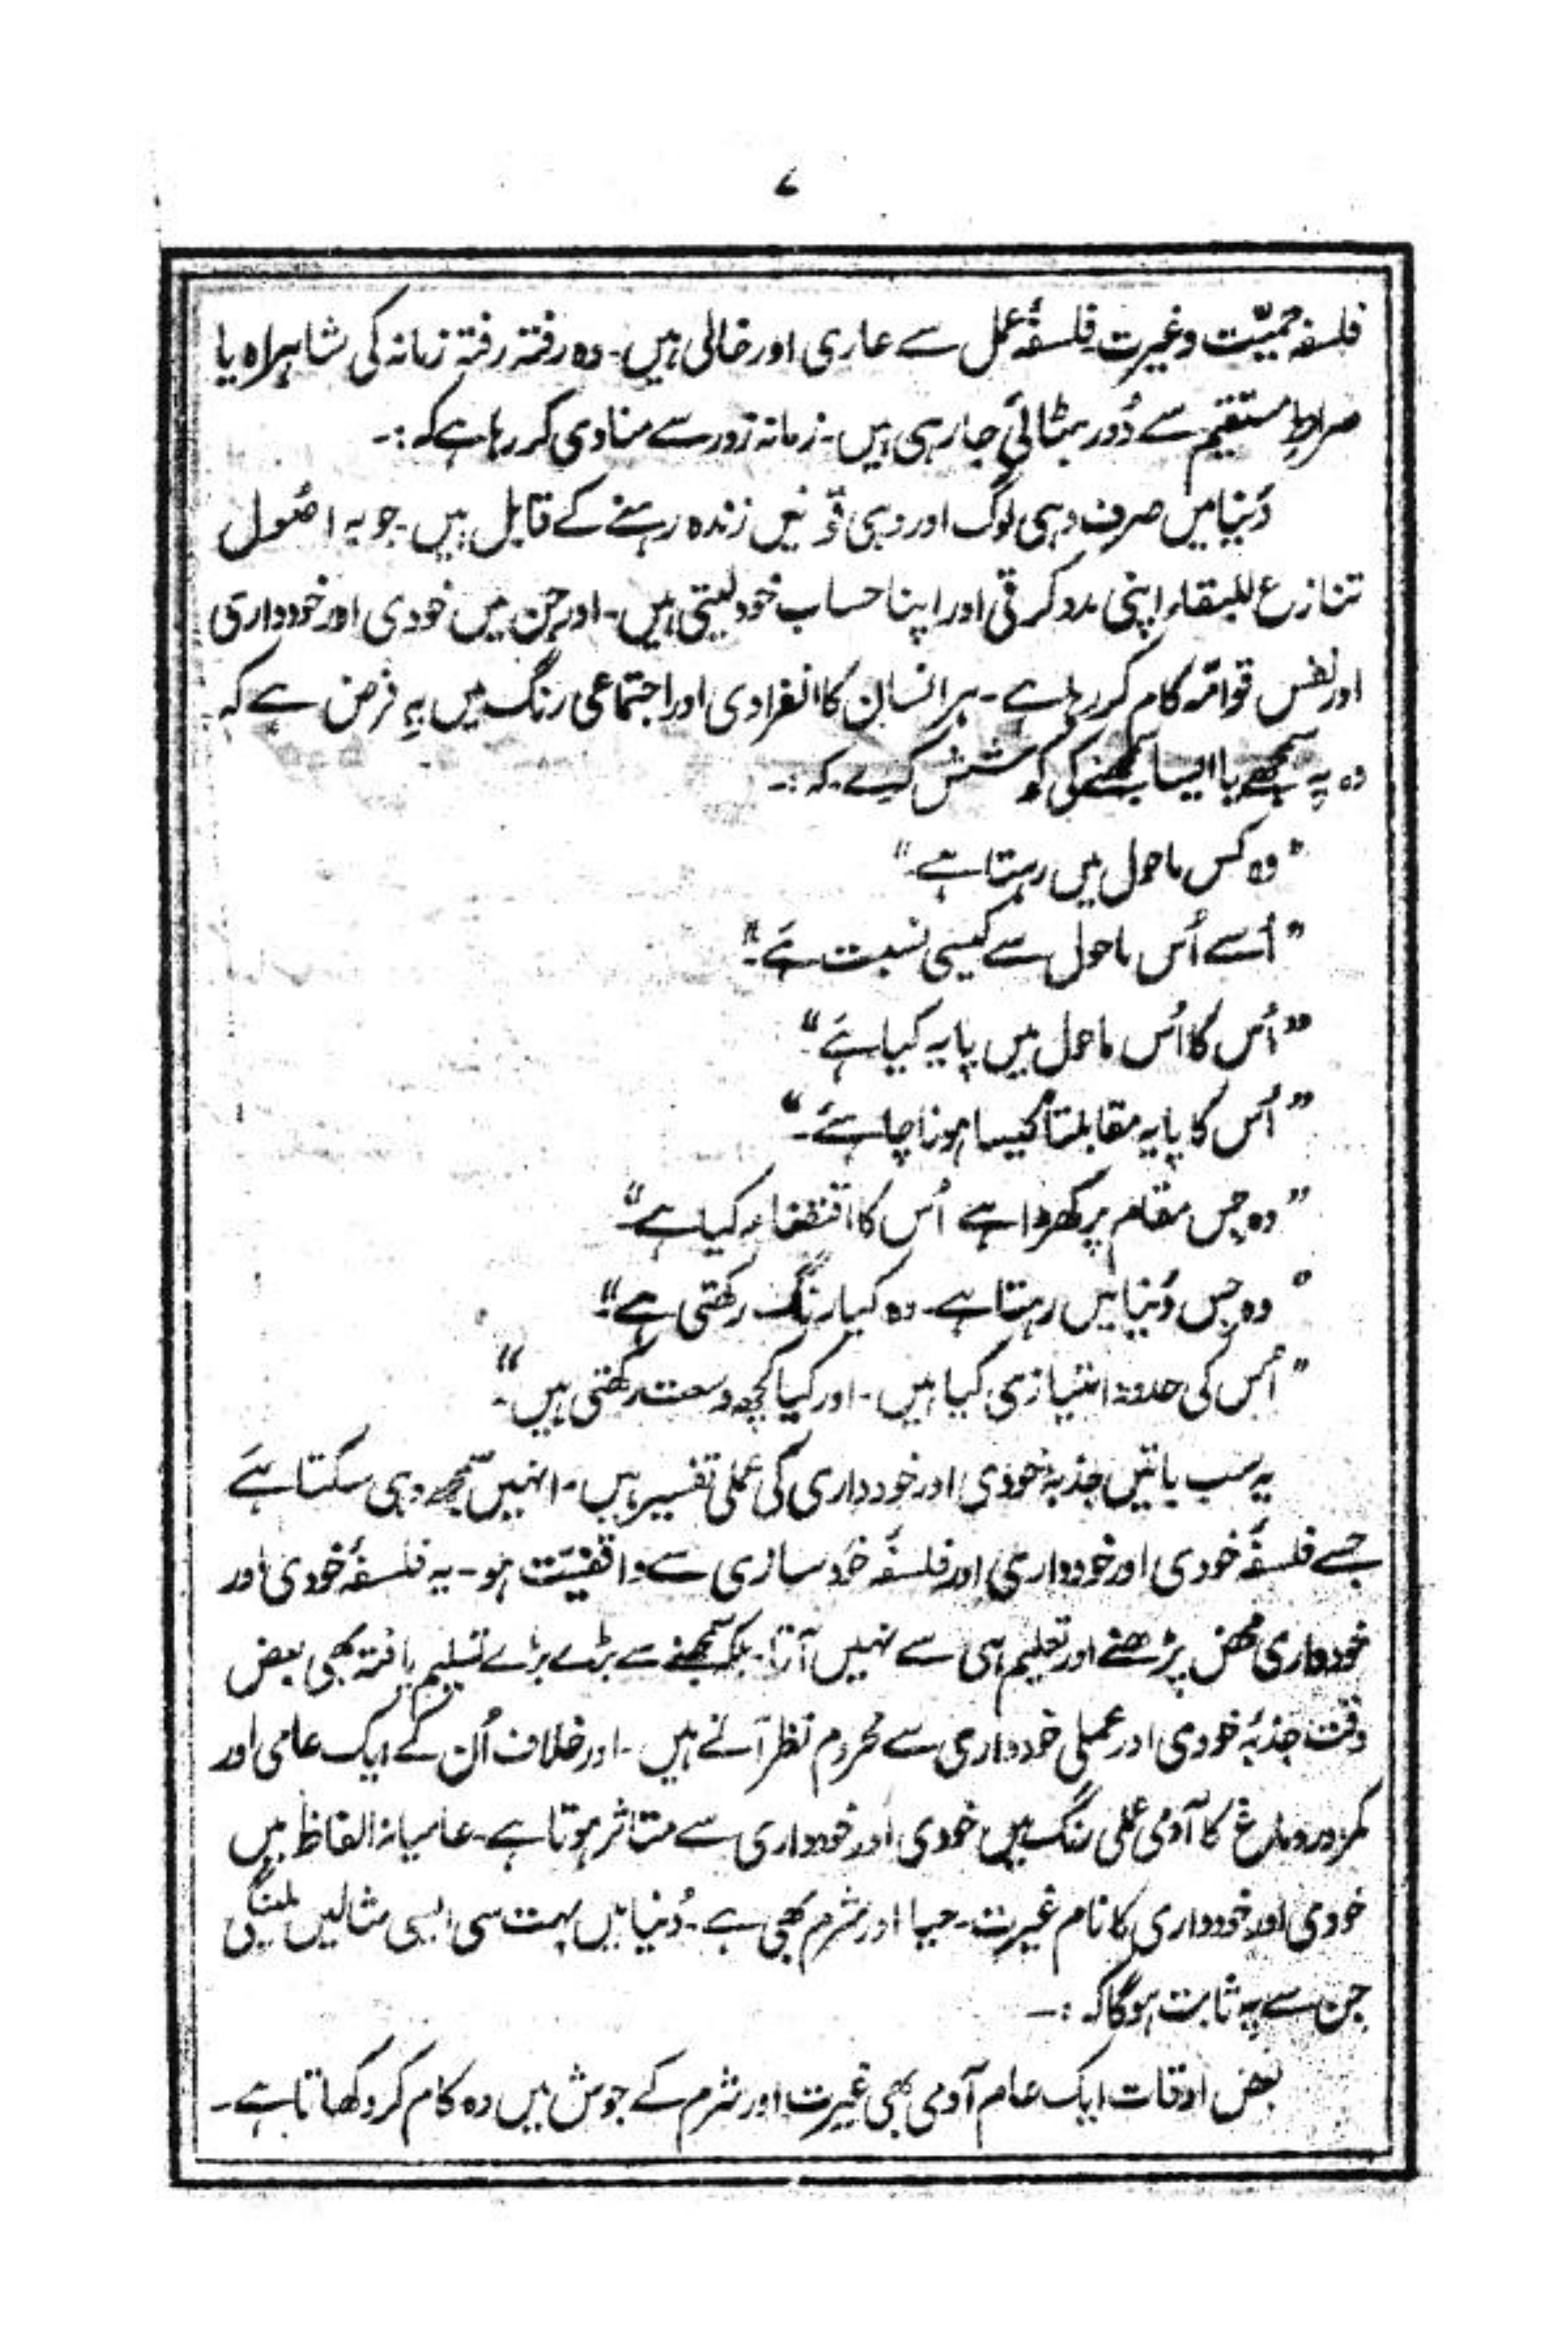 ۷
فلسفہ حمیّت و غیرت۔ فلسفۂ عمل سے عاری اور خالی ہیں۔ وہ رفتہ رفتہ زمانہ کی شاہراہ یا
صراطِ مستقیم سے دُور ہٹائی جا رہی ہیں۔ زمانہ زور سے منادی کر رہا ہے کہ:۔
دُنیا میں صرف وہی لوگ اور وہی قومیں زندہ رہنے کے قابل ہیں۔ جو بہ اصُول
تنازع للبقاء اپنی مدد کرتی اور اپنا حساب خود لیتی ہیں۔ اور جن میں خودی اور خودداری
اور نفس قوامّہ کام کر رہا ہے۔ ہر انسان کا انفرادی اور اجتماعی رنگ میں یہ فرض ہے کہ
وہ یہ سمجھے یا ایسا سمجھنے کی کوشش کرے۔ کہ:۔
"وہ کس ماحول میں رہتا ہے۔"
"اُسے اُس ماحول سے کیسی نسبت ہَے۔"
"اُس کا اُس ماحول میں پایہ کیا ہَے"
"اُس کا پایہ مقابلتاً کیسا ہونا چاہئے۔"
"وہ جس مقام پر کھڑا ہے اُس کا اقتضاء کیا ہے"
"وہ جس دُنیا میں رہتا ہے۔ وہ کیا رنگ رکھتی ہے۔"
"اُس کی حدود امتیازی کیا ہیں۔ اور کیا کچھ وسعت رکھتی ہیں"۔
یہ سب باتیں جذبۂ خودی اور خودداری کی عملی تفسیر ہیں۔ انہیں سمجھ وہی سکتا ہَے
جسے فلسفۂ خودی اور خودداری اور فلسفۂ خود سازی سے واقفیّت ہو۔ یہ فلسفۂ خودی اور
خودداری محض پڑھنے اور تعلیم ہی سے نہیں آتا۔ بلکہ سمجھنے سے بڑے بڑے تعلیم یافتہ بھی بعض
وقت جذبۂ خودی اور عملی خودداری سے محروم نظر آتے ہیں۔ اور خلاف اُن کے ایک عامی اور
کمزور دماغ کا آدمی عملی رنگ میں خودی اور خودداری سے متاثر ہوتا ہے۔ عامیانہ الفاظ میں
خودی اور خودداری کا نام غیرت۔ حیا اور شرم بھی ہے۔ دُنیا میں بہت سی ایسی مثالیں ملینگی
جن سے یہ ثابت ہوگا کہ:۔
بعض اوقات ایک عام آدمی بھی غیرت اور شرم کے جوش میں وہ کام کر دکھاتا ہے۔